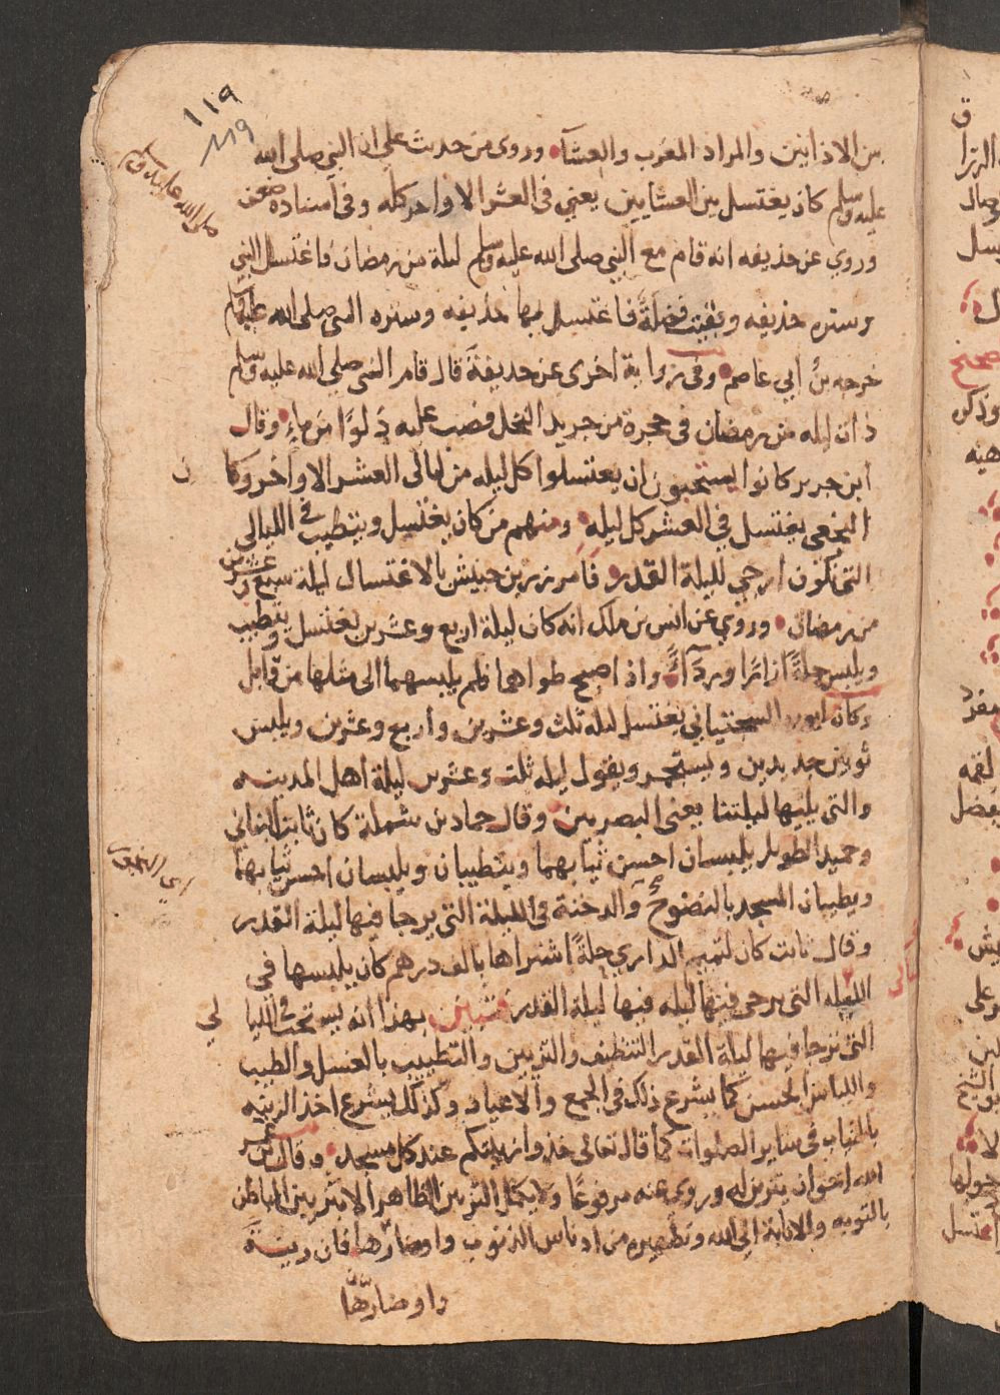 ١١٩
١١٩
بين الاذانين والمراد المغرب والعشآء وروى من حديث علي ان النبي صلى الله
عليه وسلم كان يغتسل بين العشايين يعني في العشر الاواخر كله وفي اسناده ضعف
صلى الله عليه وسلم
وروي عن حذيفه انه قام مع النبي صلى الله عليه وسلم ليلة من رمضان فاغتسل النبي
وستره حذيفه وبقيت فضلة فاغتسل بها حذيفه وستره النبي صلى الله عليه وسلم
خرجه بن أبي عاصم وفي رواية اخرى عن حذيفة قال قام النبي صلى الله عليه وسلم
ذات ليله من رمضان في حجرة من جريد النخل فصب عليه دلوًا من ماءٍ وقال
ابن جرير كانوا يستحبون ان يغتسلوا كل ليله من ليالى العشر الاواخر وكا
ن
النخعى يغتسل في العشر كل ليله ومنهم من كان يغتسل ويتطيب في الليالى
التى تكون ارجي لليلة القدر فامر زر بن حبيش بالاغتسال ليلة سبع وعشرين
من رمضان وروي عن انس بن ملك انه كان ليلة اربع وعشرين يغتسل ويتطيب
ويلبس حلةً ازارًا ورداءً واذا اصبح طواهما فلم يلبسهما الى مثلها من قابل
وكان ايوب السختياني يغتسل ليله ثلث وعشرين وأربع وعشرين ويلبس
ثوبين جديدين ويستجمر ويقول ليله ثلث وعشرين ليلة اهل المدينه
والتى يليها ليلتنا يعني البصريين وقال حماد بن سلمة كان ثابت البناني
وحميد الطويل يلبسان احسن ثيابهما ويتطيبان ويلبسان احسن ثيابهما
ويطيبان المسجد بالنضوح والدخنة في الليلة التى يرجا فيها ليلة القدر
وقال ثابت كان لتميم الداري حلةً اشتراها بالف درهم كان يلبسها في
الليله التى يرجى فيها ليله فيها ليلة القدر فتبين بهذا أنه يستحب في الليا
لي
التى ترجا فيها ليلة القدر التنظيف والتزيين والتطييب بالغسل والطيب
واللباس الحسن كما يشرع ذلك في الجمع والاعياد وكذلك يشرع اخذ الزينه
بالثياب في ساير الصلوات كما قال تعالى خذوا زينتكم عند كل مسجد وقال بن عمر
الله احق ان يتزين له وروي عنه مرفوعًا ولا يكمل التزين الظاهر الا بتزيين الباطن
بالتوبه والانابة الي الله وتطهيره من ادناس الذنوب واوضارها فان زينة
واوضارها